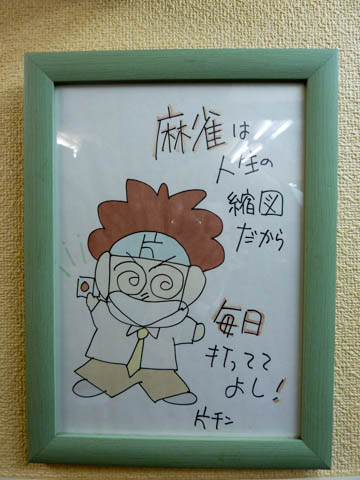 麻雀は
人生の
縮図
だから
毎日
打ってて
よし!
片チン
片